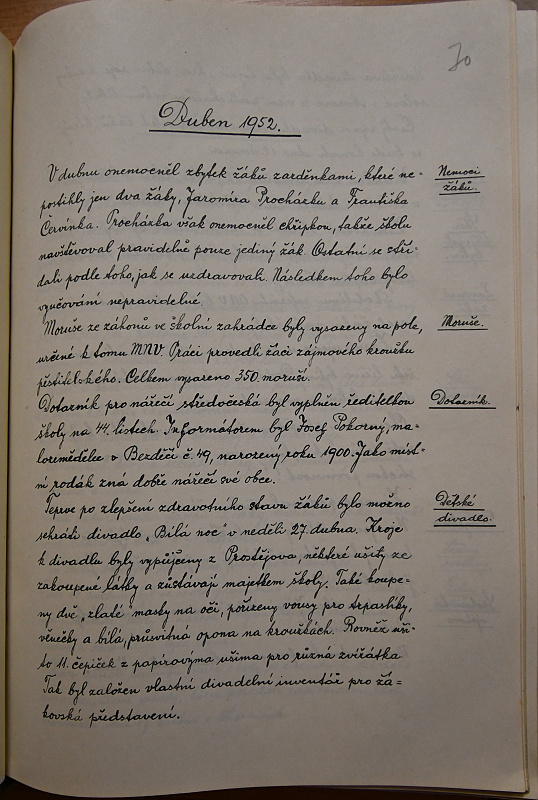 70
Duben 1952.
V dubnu onemocněl zbytek žáků zarděnkami, které ne-
postihly jen dva žáky, Jaromíra Procházku a Františka
Červinka. Procházka však onemocněl chřipkou, takže školu
navštěvoval pravidelně pouze jediný žák. Ostatní se stří-
dali podle toho, jak se uzdravovali. Následkem toho bylo
vyučování nepravidelné.
Nemoci
žáků.
Moruše ze záhonů ve školní zahrádce byly vysazeny na pole,
určené k tomu MNV. Práci provedli žáci zájmového kroužku
pěstitelského. Celkem vysazeno 350 moruší.
Moruše.
Dotazník pro nářečí středočeská byl vyplněn ředitelkou
školy na 44 listech. Informátorem byl Josef Pokorný, ma-
lorolník v Bezdíčí č. 49, narozený roku 1900. Jako míst-
ní rodák zná dobře nářečí své obce.
Dotazník.
Teprve po zlepšení zdravotního stavu žáků bylo možno
sehráti divadlo „Bílá noc" v neděli 27. dubna. Kroje
k divadlu byly vypůjčeny z Prostějova, některé ušity ze
zakoupené látky a zůstávají majetkem školy. Také koupe-
ny dvě „zlaté" masky na oči, pořízeny vousy pro trpaslíky,
věnečky a bílá, průsvitná opona na kroužkách. Rovněž uši-
to 11. čepiček z papírovýma ušima pro různá zvířátka
Tak byl založen vlastní divadelní inventář pro žá-
kovská představení.
Dětské
divadlo.